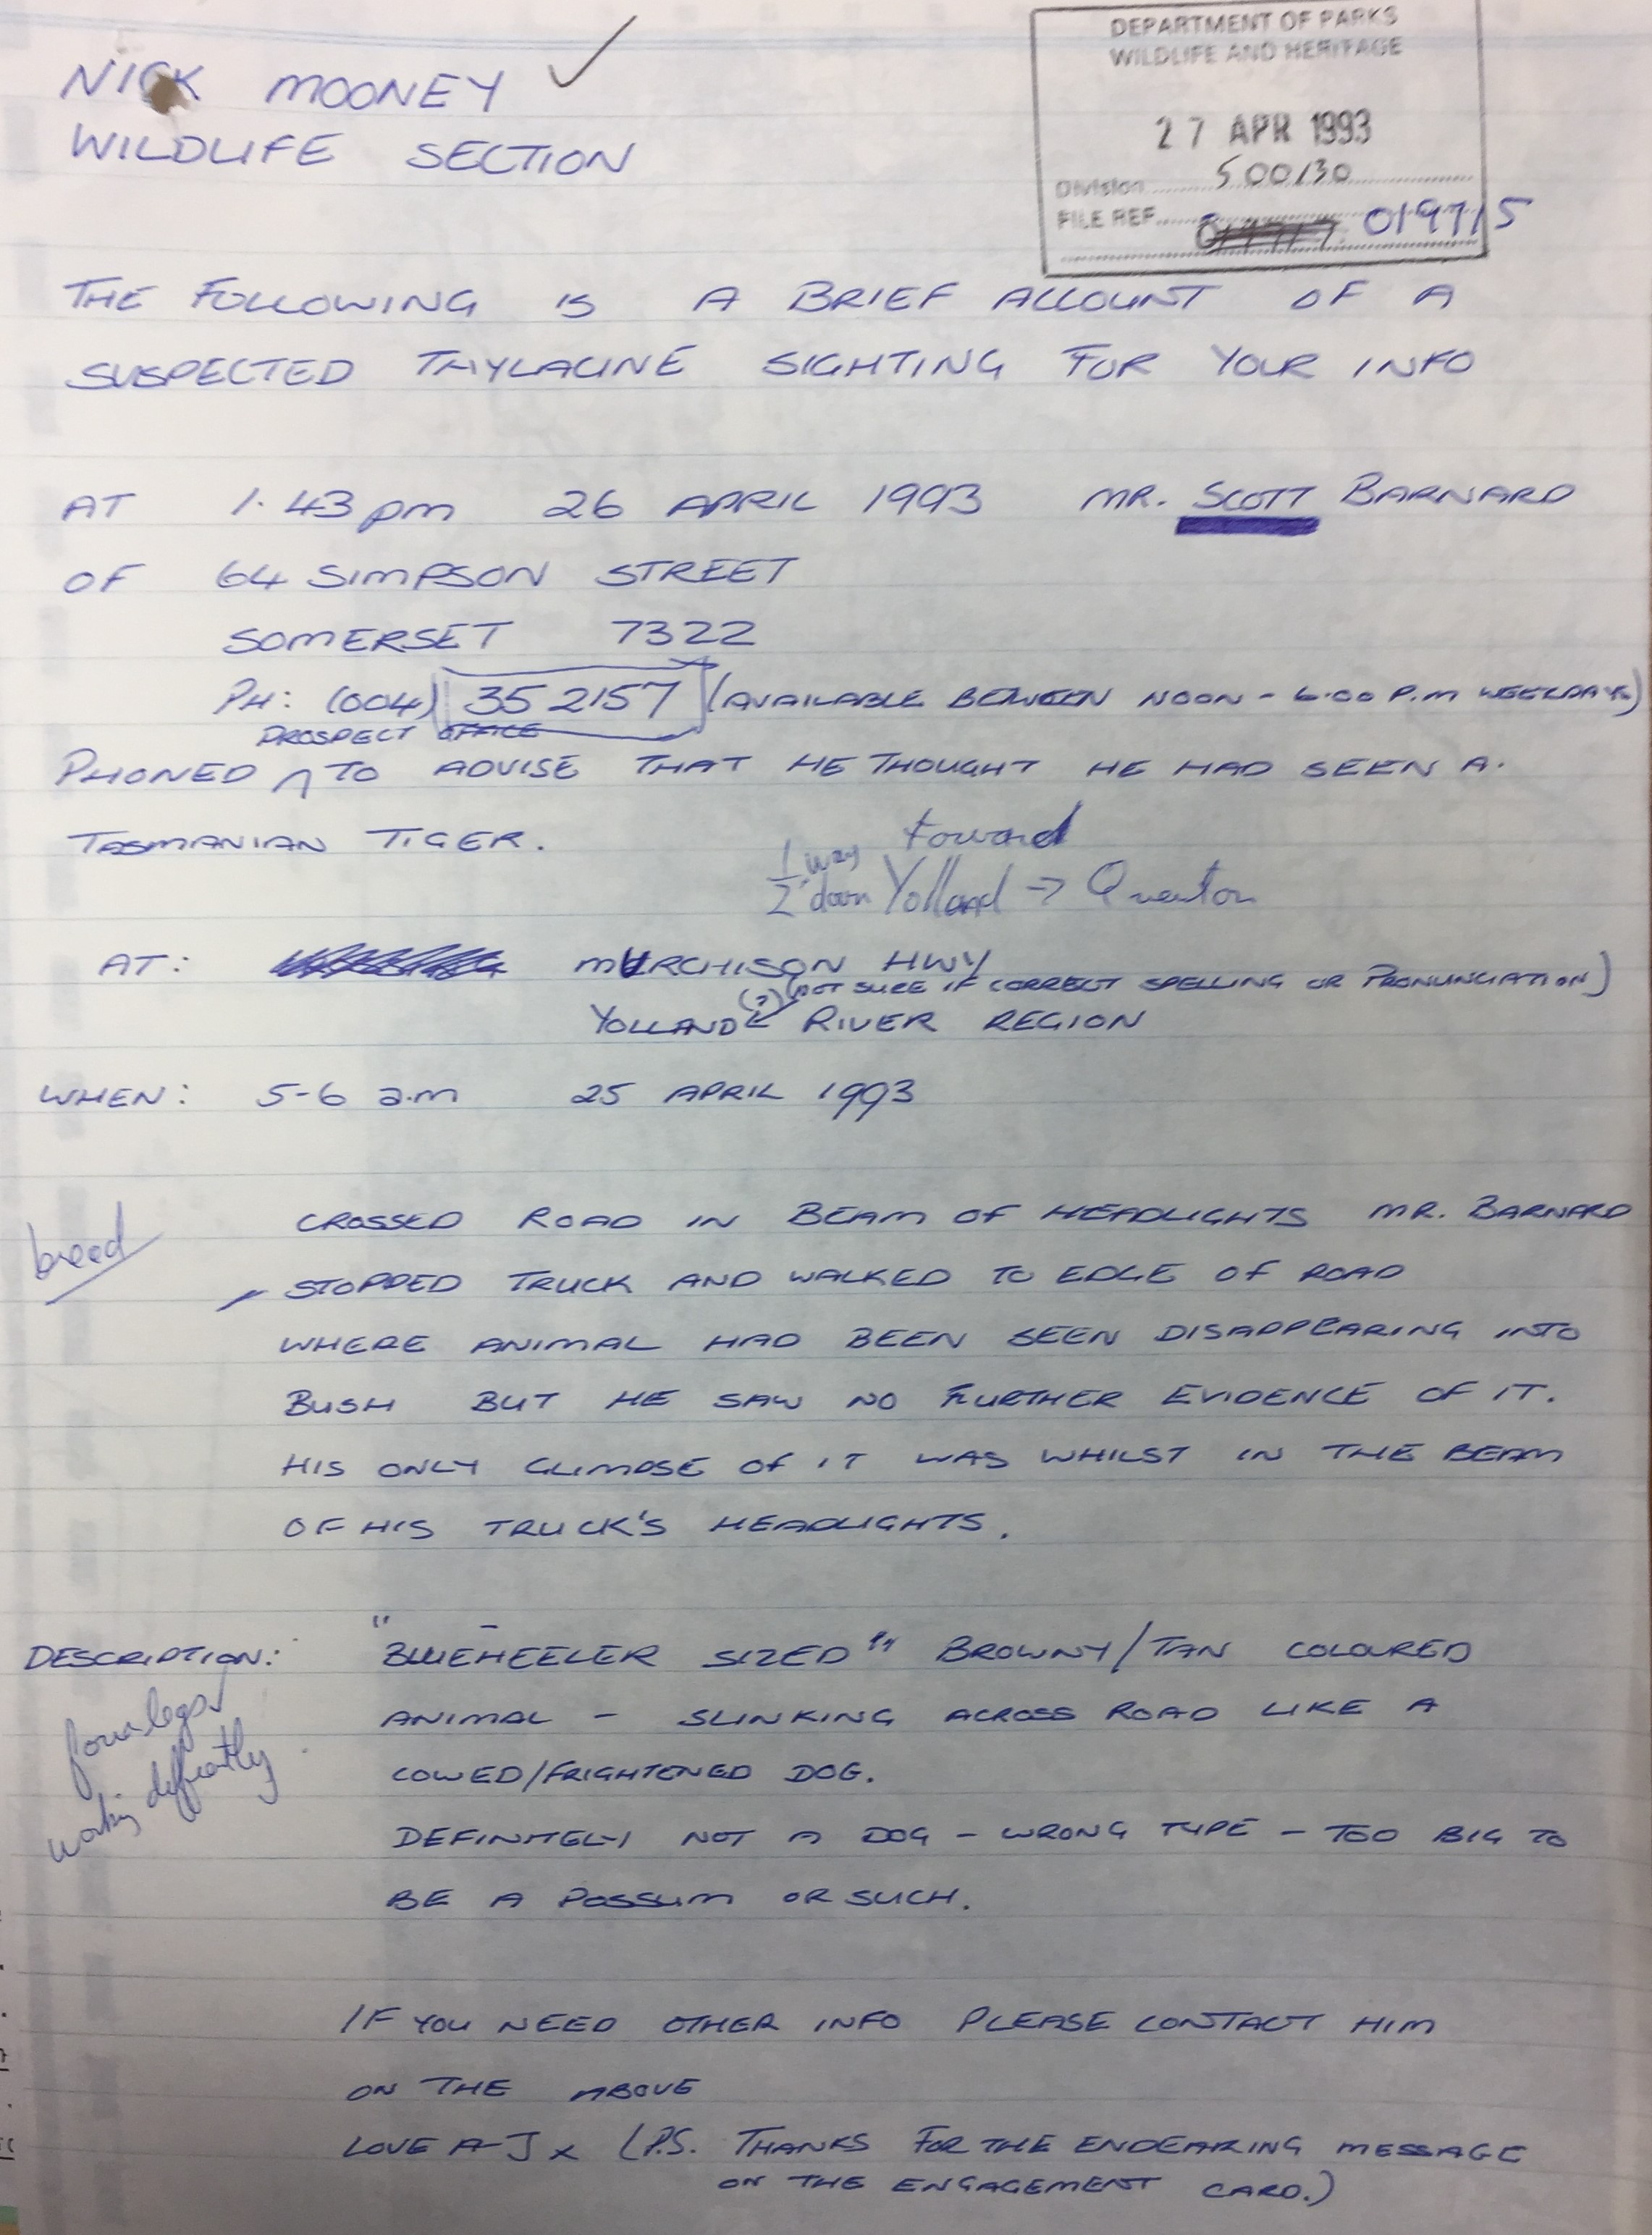 DEPARTMENT OF PARKS
WILDLIFE AND HERITAGE
27 APR 1993
Division 500/30
FILE REF. 019715
NICK MOONEY ✓
WILDLIFE SECTION
THE FOLLOWING IS A BRIEF ACCOUNT OF A
SUSPECTED THYLACINE SIGHTING FOR YOUR INFO
AT 1.43 pm 26 APRIL 1993 MR. SCOTT BARNARD
OF 64 SIMPSON STREET
SOMERSET 7322
PH: (004) 35 2157 (AVAILABLE BETWEEN NOON - 6.00 P.M WEEKDAYS)
PROSPECT OFFICE
PHONED ^ TO ADVISE THAT HE THOUGHT HE HAD SEEN A.
TASMANIAN TIGER.
toward
1/2 way down Yolland →
AT: MURCHISON HWY
(?) (NOT SURE IF CORRECT SPELLING OR PRONUNCIATION)
YOLLAND RIVER REGION
WHEN: 5-6 a.m 25 APRIL 1993
breed
CROSSED ROAD IN BEAM OF HEADLIGHTS MR. BARNARD
STOPPED TRUCK AND WALKED TO EDGE OF ROAD
WHERE ANIMAL HAD BEEN SEEN DISAPPEARING INTO
BUSH BUT HE SAW NO FURTHER EVIDENCE OF IT.
HIS ONLY GLIMPSE OF IT WAS WHILST IN THE BEAM
OF HIS TRUCK'S HEADLIGHTS.
DESCRIPTION: "BLUEHEELER SIZED" BROWNY/TAN COLOURED
ANIMAL - SLINKING ACROSS ROAD LIKE A
four legs
COWED/FRIGHTENED DOG.
DEFINITELY NOT A DOG - WRONG TYPE - TOO BIG TO
BE A POSSUM OR SUCH.
IF YOU NEED OTHER INFO PLEASE CONTACT HIM
ON THE ABOVE
LOVE A-J x (P.S. THANKS FOR THE ENDEARING MESSAGE
ON THE ENGAGEMENT CARD.)